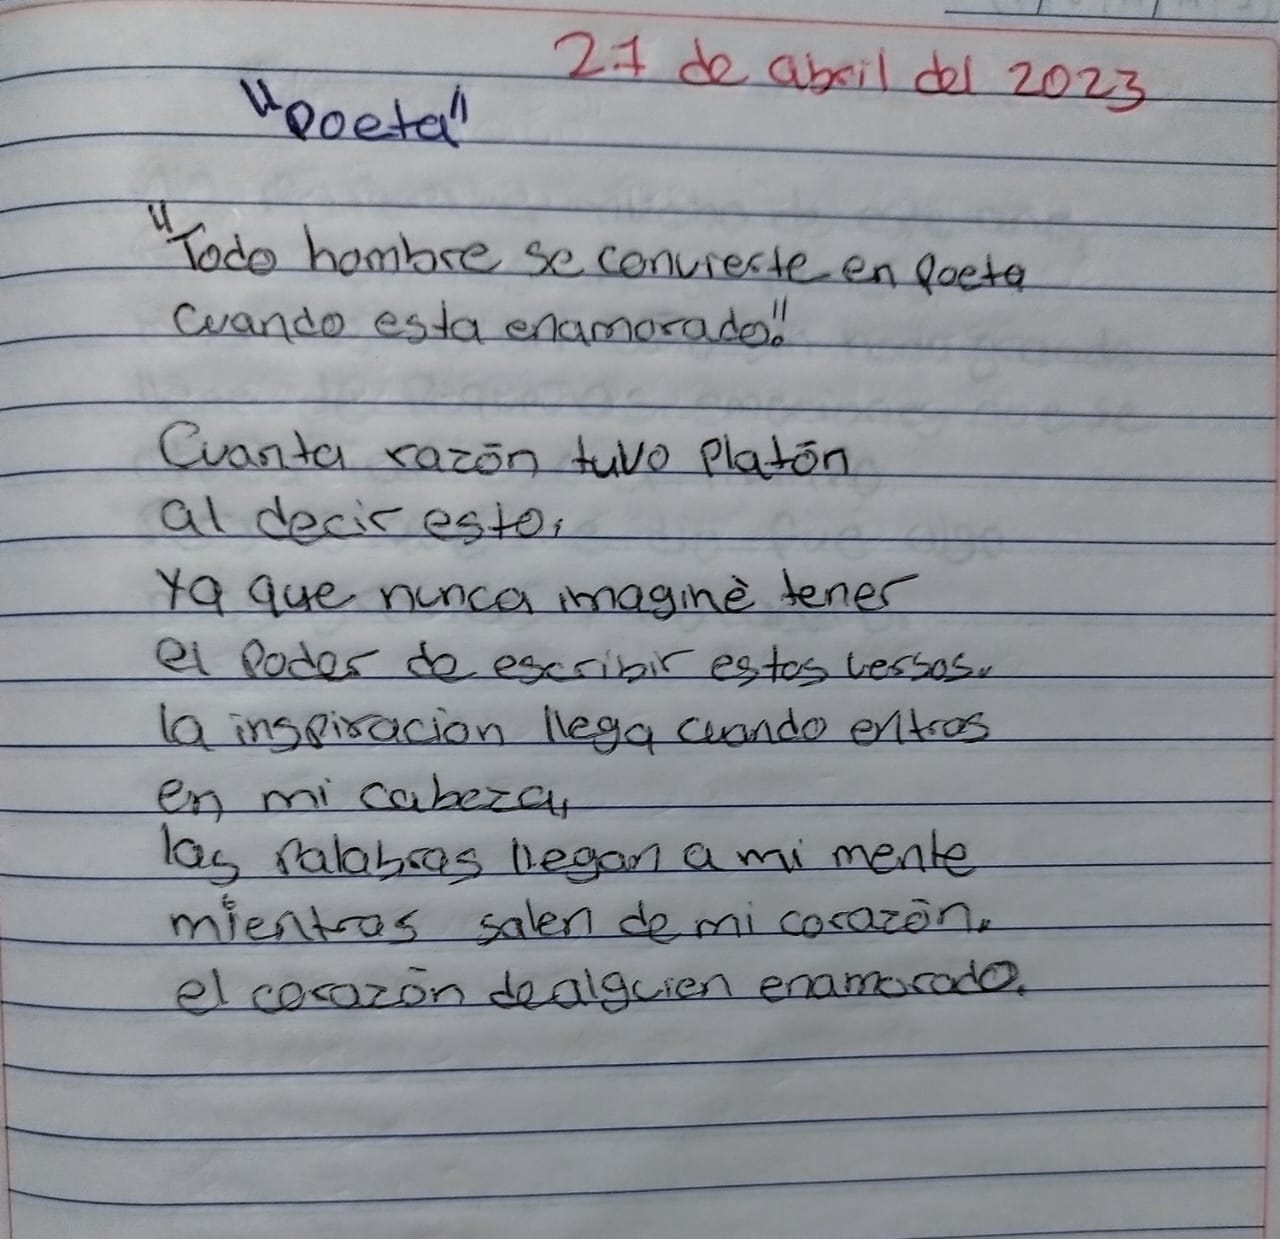 21 de abril del 2023
"Poeta"
"Todo hombre se convierte en Poeta
cuando esta enamorado."
Cuanta razón tuvo Platón
al decir esto,
Ya que nunca imaginè tener
el Poder de escribir estos versos.
la inspiracion llega cuando entras
en mi cabeza,
las palabras llegan a mi mente
mientras salen de mi corazón.
el corazón de alguien enamorado.